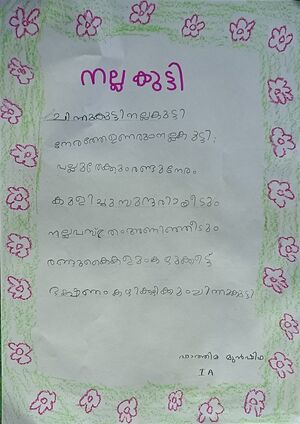 നല്ല കുട്ടി
ചിന്നുകുട്ടി നല്ലകുട്ടി
നേരത്തേഉണരുംനല്ലകുട്ടി;
പല്ലുതേക്കുംരണ്ടുനേരം
കുളിച്ചുസുന്ദരിയായിടും
നല്ലവസ്ത്രംഅണിഞ്ഞീടും
രണ്ടുകൈകളുംകഴുകീട്ട്
ഭക്ഷണം കഴിക്കുംചിന്നുകുട്ടി
ഫാത്തിമ
I A